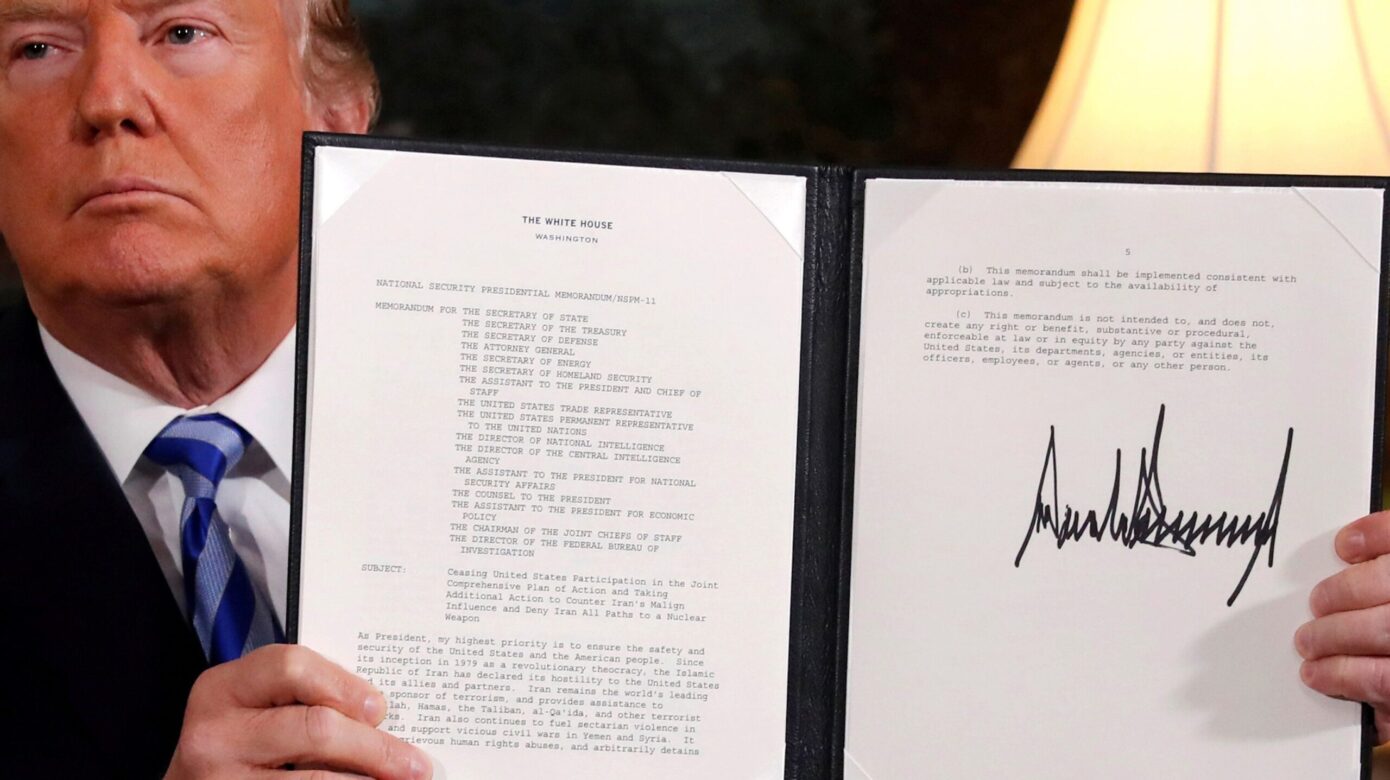 THE WHITE HOUSE
WASHINGTON
NATIONAL SECURITY PRESIDENTIAL MEMORANDUM/NSPM-11
MEMORANDUM FOR THE SECRETARY OF STATE
THE SECRETARY OF THE TREASURY
THE SECRETARY OF DEFENSE
THE ATTORNEY GENERAL
THE SECRETARY OF ENERGY
THE SECRETARY OF HOMELAND SECURITY
THE ASSISTANT TO THE PRESIDENT AND CHIEF OF
STAFF
THE UNITED STATES TRADE REPRESENTATIVE
THE UNITED STATES PERMANENT REPRESENTATIVE
TO THE UNITED NATIONS
THE DIRECTOR OF NATIONAL INTELLIGENCE
THE DIRECTOR OF THE CENTRAL INTELLIGENCE
AGENCY
THE ASSISTANT TO THE PRESIDENT FOR NATIONAL
SECURITY AFFAIRS
THE COUNSEL TO THE PRESIDENT
THE ASSISTANT TO THE PRESIDENT FOR ECONOMIC
POLICY
THE CHAIRMAN OF THE JOINT CHIEFS OF STAFF
THE DIRECTOR OF THE FEDERAL BUREAU OF
INVESTIGATION
SUBJECT: Ceasing United States Participation in the Joint
Comprehensive Plan of Action and Taking
Additional Action to Counter Iran's Malign
Influence and Deny Iran All Paths to a Nuclear
Weapon
As President, my highest priority is to ensure the safety and
security of the United States and the American people. Since
its inception in 1979 as a revolutionary theocracy, the Islamic
Republic of Iran has declared its hostility to the United States
its allies and partners. Iran remains the world's leading
sponsor of terrorism, and provides assistance to
lah, Hamas, the Taliban, al-Qa'ida, and other terrorist
rks. Iran also continues to fuel sectarian violence in
and support vicious civil wars in Yemen and Syria. It
rievous human rights abuses, and arbitrarily detains
5
(b) This memorandum shall be implemented consistent with
applicable law and subject to the availability of
appropriations.
(c) This memorandum is not intended to, and does not,
create any right or benefit, substantive or procedural,
enforceable at law or in equity by any party against the
United States, its departments, agencies, or entities, its
officers, employees, or agents, or any other person.